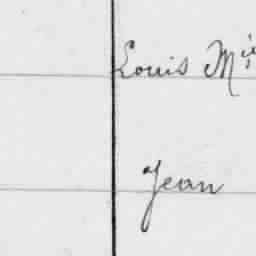 Louis Mie
Jean